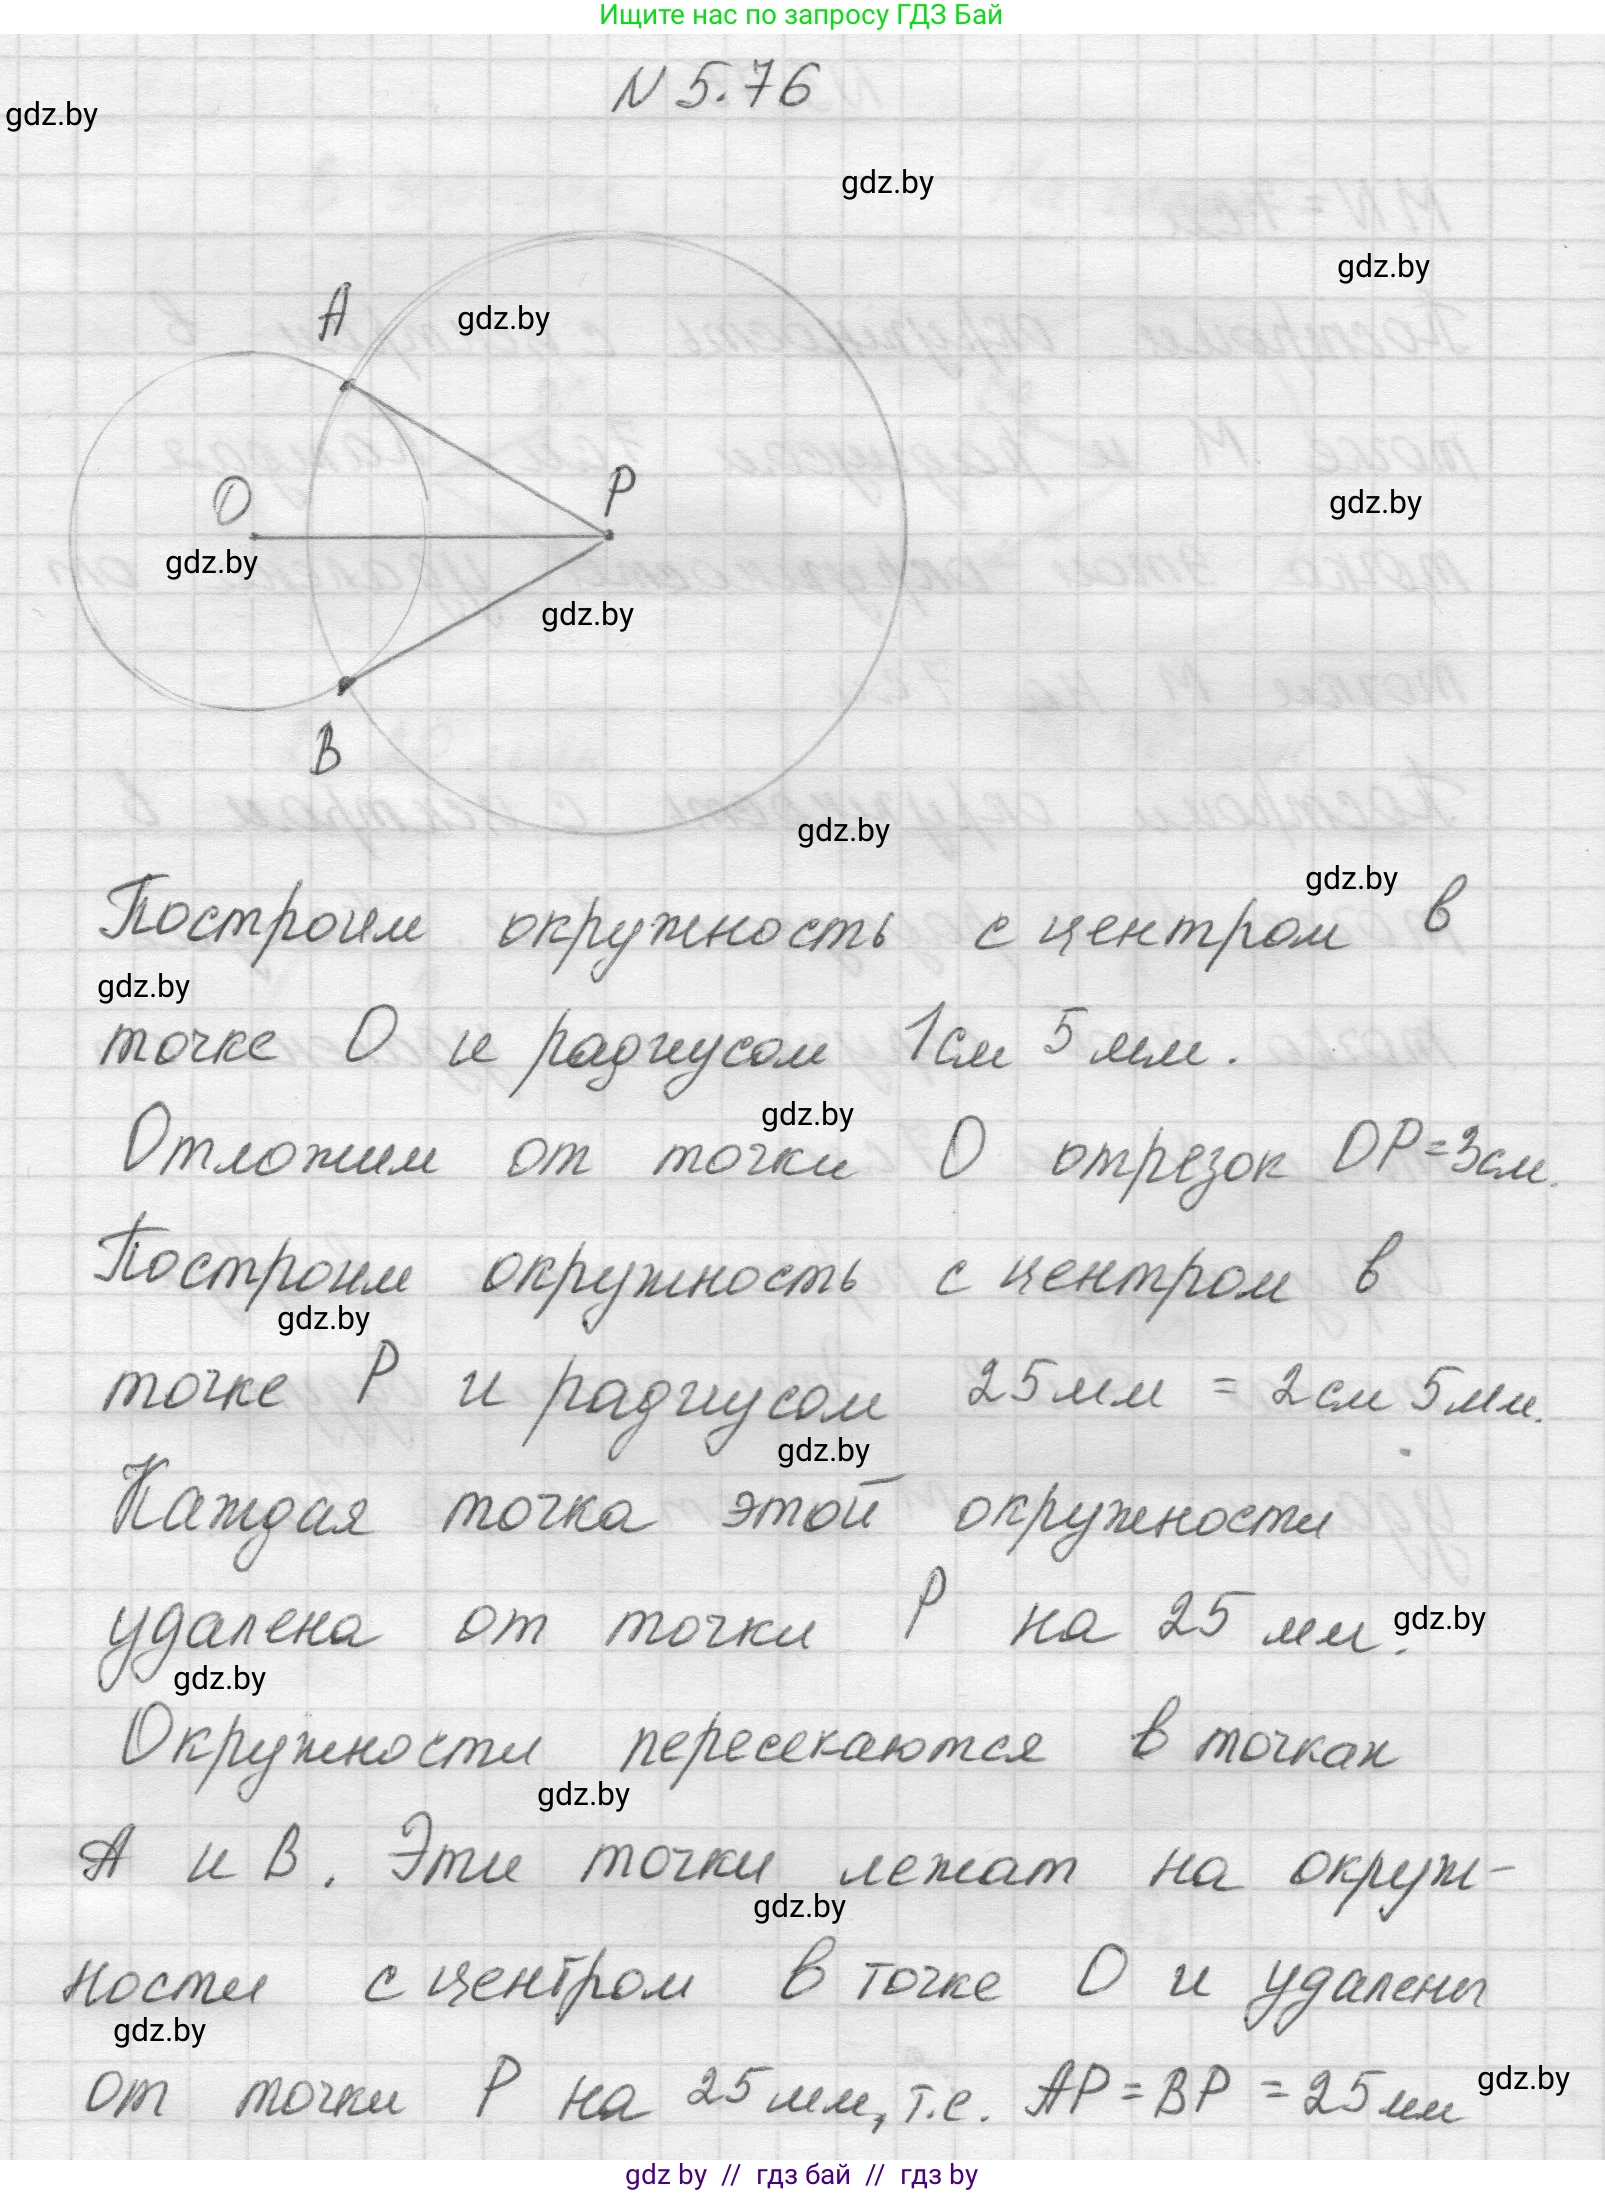 Ищите нас по запросу ГДЗ Бай
N 5.76
gdz.by
gdz.by
gdz.by
A
gdz.by
O
P
gdz.by
gdz.by
gdz.by
B
gdz.by
gdz.by
Построим окружность с центром в
gdz.by
точке O и радиусом 1см 5 мм.
gdz.by
Отложим от точки O отрезок OP=3см.
Построим окружность с центром в
gdz.by
точке P и радиусом 25мм = 2см 5мм.
gdz.by
Каждая точка этой окружности
удалена от точки P на 25 мм.
gdz.by
gdz.by
Окружности пересекаются в точках
gdz.by
A и B. Эти точки лежат на окруж-
gdz.by
ности с центром в точке O и удалены
gdz.by
gdz.by
от точки P на 25мм, т.е. AP=BP=25мм
gdz by // гдз бай // гдз by